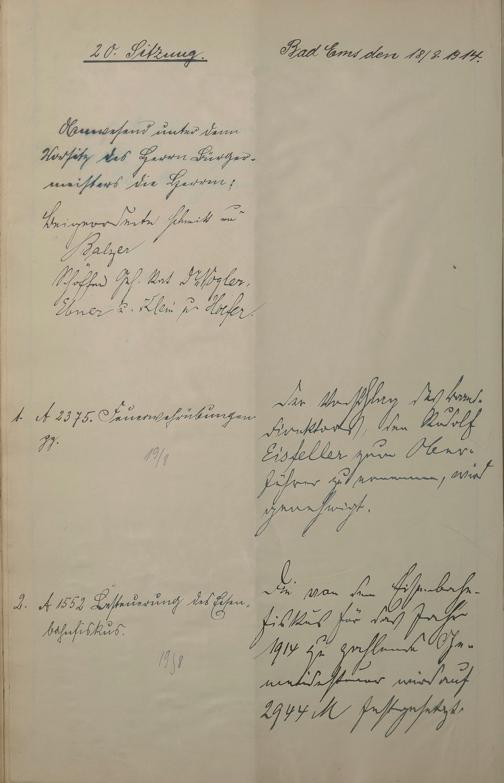 20. Sitzung.
Bad Ems den 18/8 1914.
Anwesend unter dem
Vorsitz des Herrn Bürger-
meisters die Herrn:
Beigeordnete Schmitt und
Balzer
Schöffen Geh. Rat Dr. Vogler,
Ebner u. Klein u. Hofer.
1. A 2375. Feuerwehrübungen
19/8
Der Vorschlag des Brand-
direktors, den Rudolf
Eisfeller zum Ober-
führer zu ernennen, wird
genehmigt.
2. A 1552 Besteuerung des Eisen-
bahnfiskus.
19/8
Die von dem Eisenbahn-
fiskus für das Jahr
1914 zu zahlende Ge-
meindesteuer wird auf
2944 M festgesetzt.